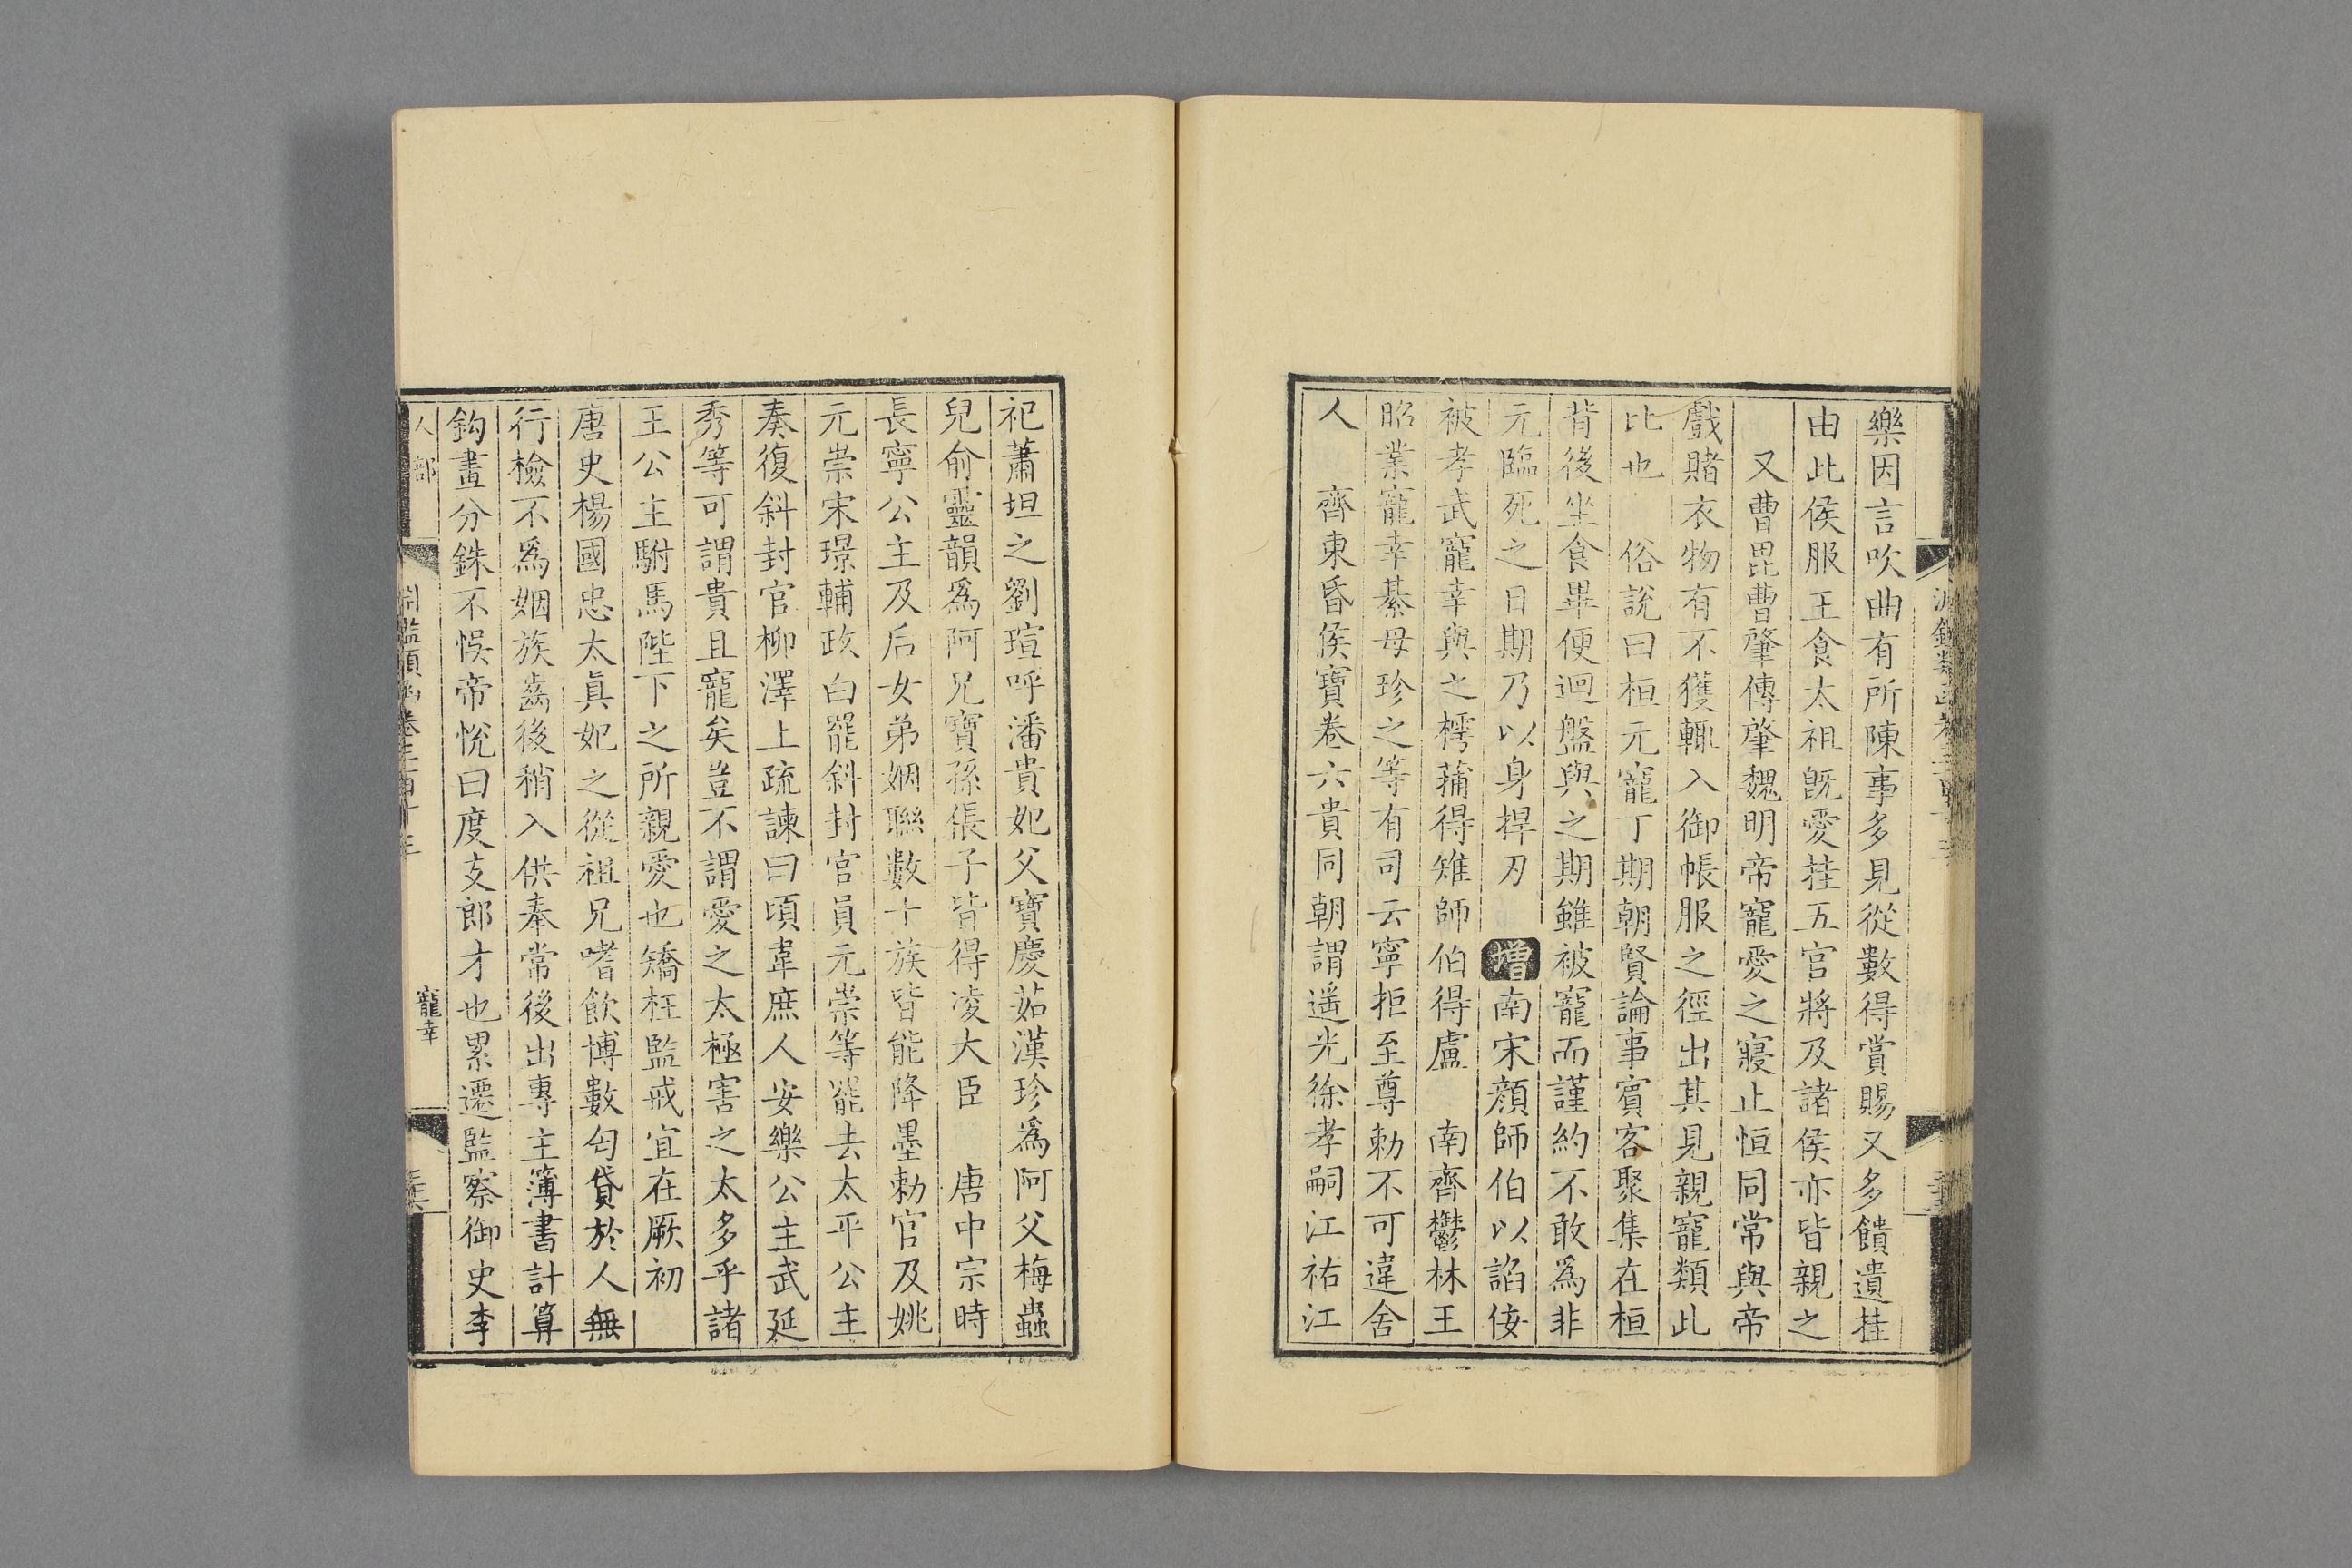 樂因言吹曲有所陳事多見從數得賞賜又多饋遺桂
由此侯服王食太祖旣愛桂五官將及諸侯亦皆親之
又曹毘曹肇傳肇魏明帝寵愛之寢止恒同常與帝
戲賭衣物有不獲輒入御帳服之徑出其見親寵類此
比也　俗說曰桓元寵丁期朝賢論事賓客聚集在桓
背後坐食畢便迴盤與之期雖被寵而謹約不敢爲非
元臨死之日期乃以身捍刃　增南宋顏師伯以諂佞
被孝武寵幸與之樗蒱得雉師伯得盧　南齊鬱林王
昭業寵幸綦母珍之等有司云寧拒至尊勅不可違舍
人　齊東昏侯寶卷六貴同朝謂遥光徐孝嗣江祐江
祀蕭坦之劉瑄呼潘貴妃父寶慶茹漢珍爲阿父梅蟲
兒俞靈韻爲阿兄寶孫倀子皆得凌大臣　唐中宗時
長寧公主及后女弟姻聯數十族皆能降墨勅官及姚
元崇宋璟輔政白罷斜封官員元崇等罷去太平公主
奏復斜封官柳澤上疏諫曰頃韋庶人安樂公主武延
秀等可謂貴且寵矣豈不謂愛之太極害之太多乎諸
王公主駙馬陛下之所親愛也矯枉監戒宜在厥初
唐史楊國忠太眞妃之從祖兄嗜飲博數匄貸於人無
行檢不爲姻族齒後稍入供奉常後出專主簿書計算
鈎畫分銖不悞帝悅曰度支郎才也累遷監察御史李
人部
淵鑑類函卷三百十三
寵幸